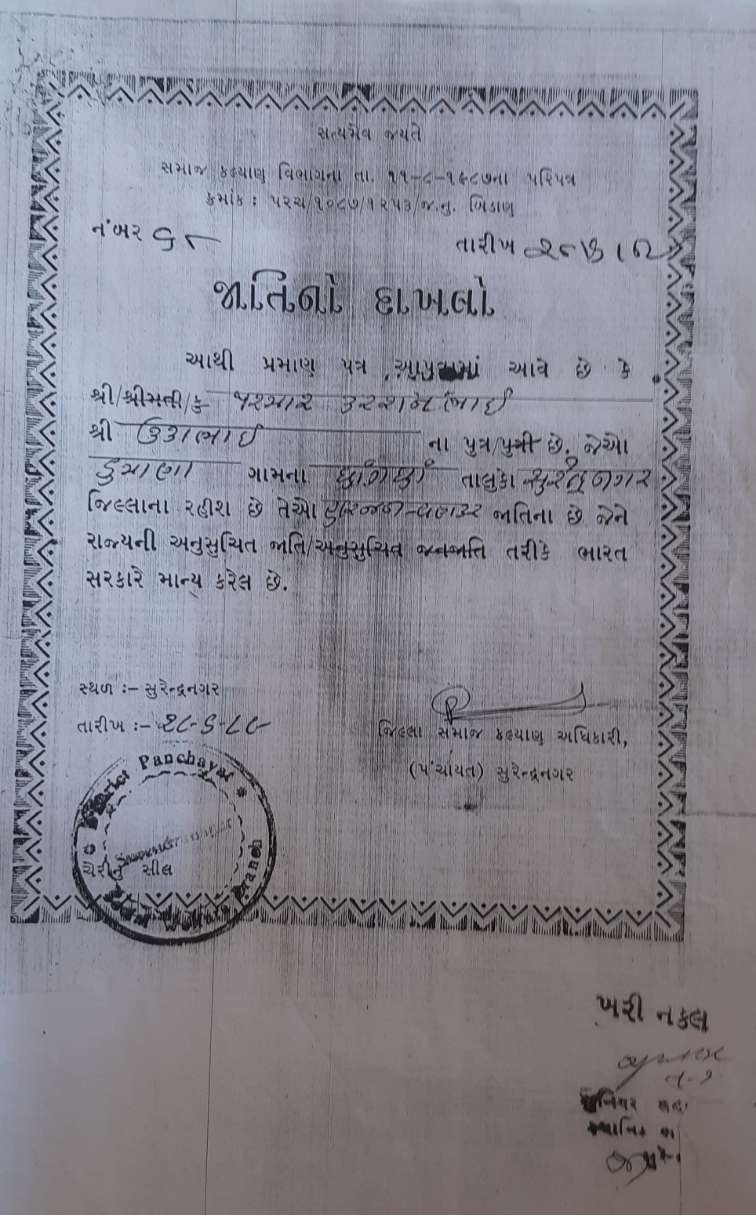 સત્યમેવ જયતે
સમાજ કલ્યાણ વિભાગના તા. ૧૧-૮-૧૯૮૭ના પરિપત્ર
ક્રમાંક : પરચ/૧૦૮૭/૧૨૫૩/જ.નુ. બિડાણ
નંબર
તારીખ
જાતિનો દાખલો
આથી પ્રમાણ પત્ર આપવામાં આવે છે કે
શ્રી/શ્રીમતી/કુ પરમાર કરશનભાઈ
શ્રી ઉકાભાઈ ના પુત્ર/પુત્રી છે. જેઓ
ગામના તાલુકા સુરેન્દ્રનગર
જિલ્લાના રહીશ છે તેઓ હરિજન-વણકર જાતિના છે જેને
રાજ્યની અનુસુચિત જાતિ/અનુસુચિત જનજાતિ તરીકે ભારત
સરકારે માન્ય કરેલ છે.
સ્થળ :– સુરેન્દ્રનગર
તારીખ :–
જિલ્લા સમાજ કલ્યાણ અધિકારી,
(પંચાયત) સુરેન્દ્રનગર
District Panchayat
Surendranagar
Welfare Branch
સીલ
ખરી નકલ